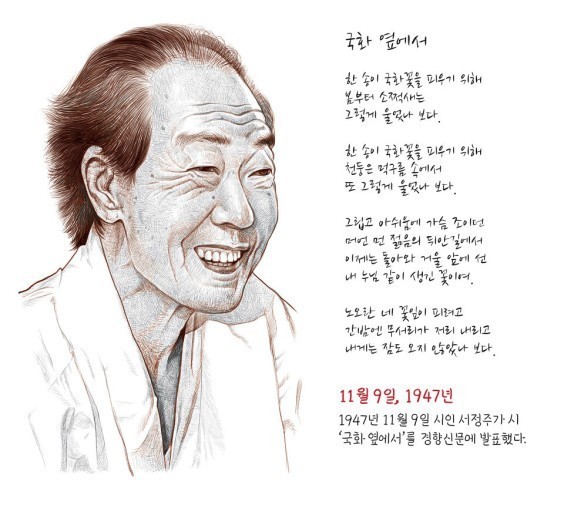 국화 옆에서
한 송이 국화꽃을 피우기 위해
봄부터 소쩍새는
그렇게 울었나 보다.
한 송이 국화꽃을 피우기 위해
천둥은 먹구름 속에서
또 그렇게 울었나 보다.
그립고 아쉬움에 가슴 조이던
머언 먼 젊음의 뒤안길에서
이제는 돌아와 거울 앞에 선
내 누님 같이 생긴 꽃이여.
노오란 네 꽃잎이 피려고
간밤엔 무서리가 저리 내리고
내게는 잠도 오지 않았나 보다.
11월 9일, 1947년
1947년 11월 9일 시인 서정주가 시
‘국화 옆에서’를 경향신문에 발표했다.